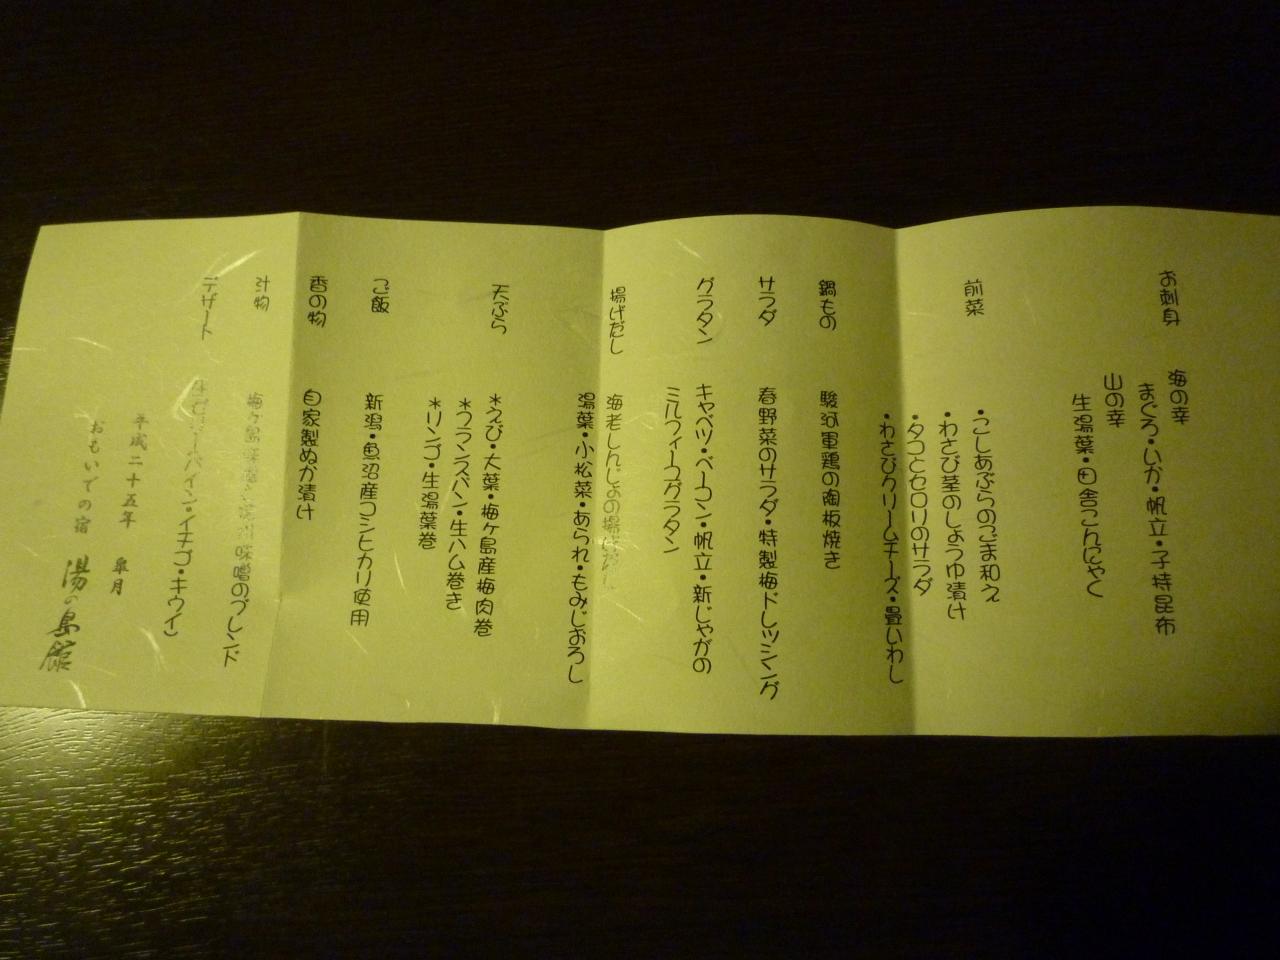 お刺身
海の幸
まぐろ・いか・帆立・子持昆布
山の幸
生湯葉・田舎こんにゃく
前菜
・こしあぶらのごま和え
・わさび茎のしょうゆ漬け
・タコとセロリのサラダ
・わさびクリームチーズ・畳いわし
鍋もの
駿河軍鶏の陶板焼き
サラダ
春野菜のサラダ・特製梅ドレッシング
グラタン
キャベツ・ベーコン・帆立・新じゃがの
ミルフィーユグラタン
揚げだし
海老しんじょの揚げだし
湯葉・小松菜・あられ・もみじおろし
天ぷら
＊えび・大葉・梅ヶ島産梅肉巻
＊フランスパン・生ハム巻き
＊リンゴ・生湯葉巻
ご飯
新潟・魚沼産コシヒカリ使用
香の物
自家製ぬか漬け
汁物
梅ヶ島 味噌のブレンド
デザート
パイン・イチゴ・キウイ）
平成二十五年 皐月
おもいでの宿 湯の島館